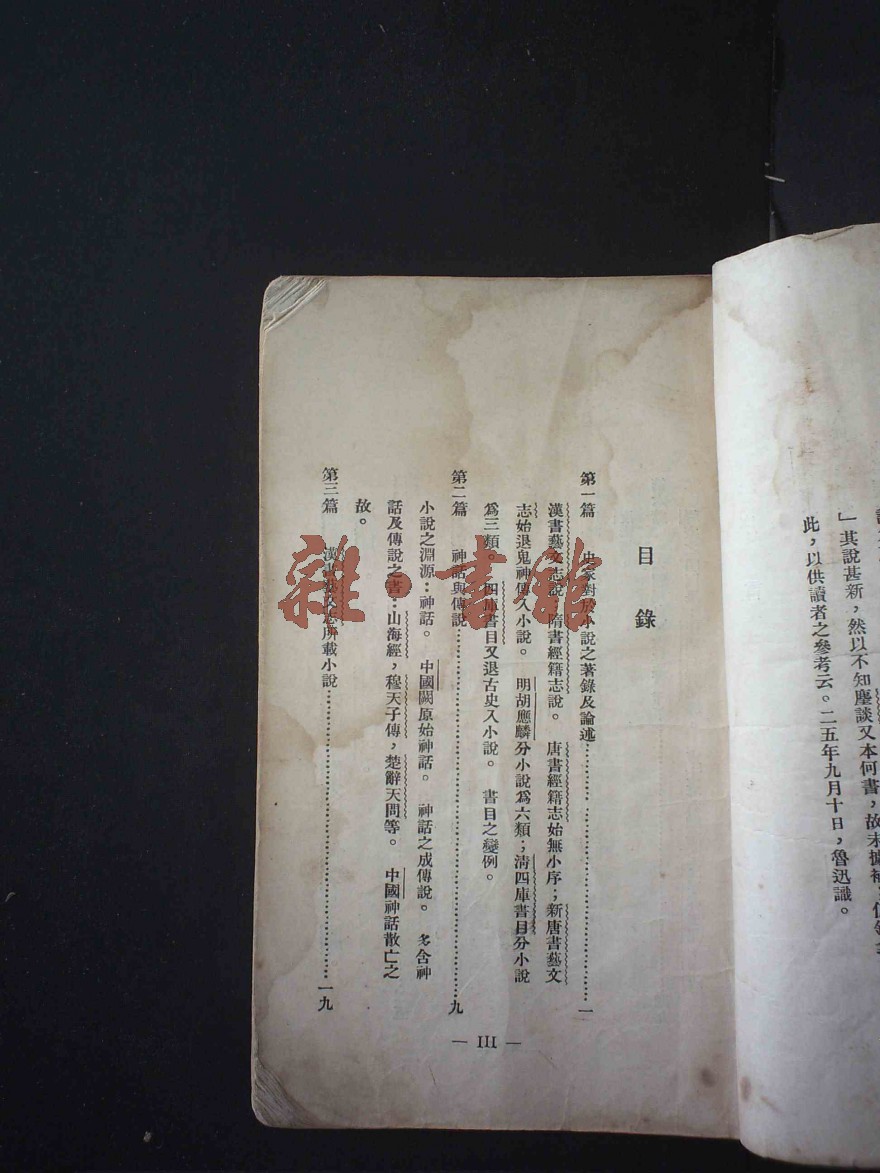 此，以供讀者之參考云。二五年九月十日，魯迅識。
」其說甚新，然以不知塵談又本何書，故未據補，
目錄
第一篇　史家對於小說之著錄及論述…………一
漢書藝文志說。隋書經籍志說。唐書經籍志始無小序；新唐書藝文
志始退鬼神傳入小說。明胡應麟分小說為六類；清四庫書目分小說
為三類。四庫書目又退古史入小說。書目之變例。
第二篇　神話與傳說…………九
小說之淵源：神話。中國闕原始神話。神話之成傳說。多含神
話及傳說之書：山海經，穆天子傳，楚辭天問等。中國神話散亡之
故。
第三篇　漢書藝文志所載小說…………一九
— III —
雜·書館